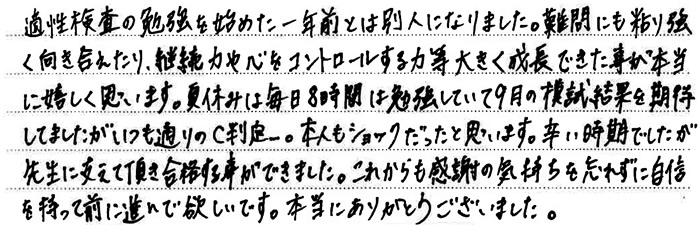 適性検査の勉強を始めた一年前とは別人になりました。難問にも粘り強
く向き合えたり、継続力や心をコントロールする力等大きく成長できた事が本当
に嬉しく思います。夏休みは毎日8時間は勉強していて9月の模試結果を期待
してましたがいつも通りのC判定ー。本人もショックだったと思います。辛い時期でしたが
先生に支えて頂き合格する事ができました。これからも感謝の気持ちを忘れずに自信
を持って前に進んで欲しいです。本当にありがとうございました。